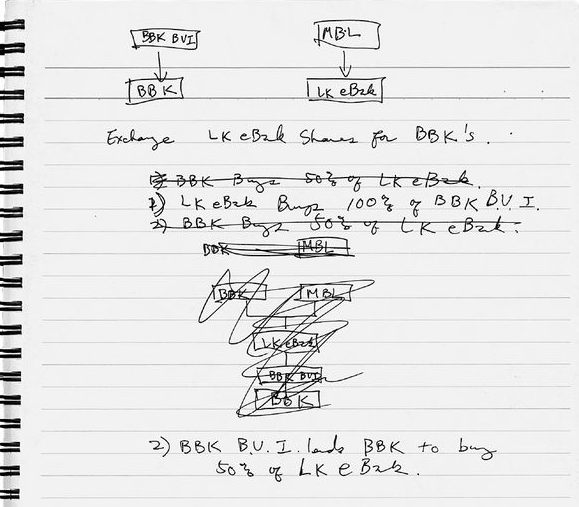 BBK BVI MBL
BBK LK eBzk
Exchange LK eBzk Shares for BBK's.
BBK Buys 50% of LK eBzk.
1) LK eBzk Buys 100% of BBK B.V.I.
2) BBK Buys 50% of LK eBzk.
BBK MBL
BBK MBL
LK eBzk
BBK BVI
BBK
2) BBK B.V.I. lends BBK to buy
50% of LK eBzk.